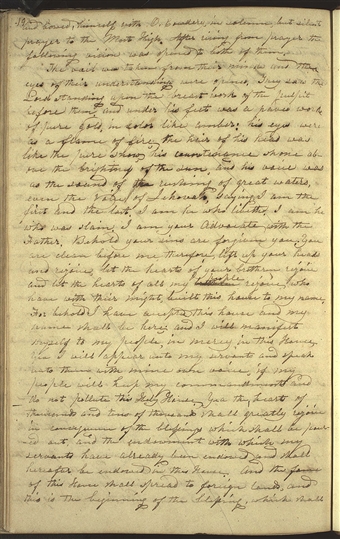 192
and bowed, himself with O. Cowdery, in solemn, but silent
prayer to the Most High, After rising from prayer the
following vision was opened to both of them,
The vail was taken from their minds and the
eyes of their understanding were opened, They saw the
Lord standing upon the breast work of the pulpit
before them, and under his feet was a paved work
of pure gold, in color like amber: his eyes were
as a flame of fire; the hair of his head was
like the pure snow, his countenance shone ab-
ove the brightness of the sun, and his voice was
as the sound of the rushing of great waters,
even the voice of Jehovah, saying, I am the
first and the last, I am he who liveth, I am he
who was slain, I am your Advocate with the
Father, Behold your sins are forgiven you, you
are clean before me therefore, lift up your heads
and rejoice, let the hearts of your brethren rejoice
and let the hearts of all my people rejoice, who
have with their might, built this house to my name,
For behold I have accepted this house and my
name shall be here; and I will manifest
myself to my people, in mercy, in this House,
Yea I will appear unto my servants and speak
unto them with mine own voice, if my
people will keep my commandments and
do not pollute this Holy House. Yea the hearts of
thousands and tens of thousands shall greatly rejoice
in consequence of the blessings which shall be pour-
ed out, and the endowment with which my
servants have already been endowed and shall
hereafter be endowed in this House. And the fame
of this House shall spread to foreign lands, and
this is the beginning of the blessing, which shall